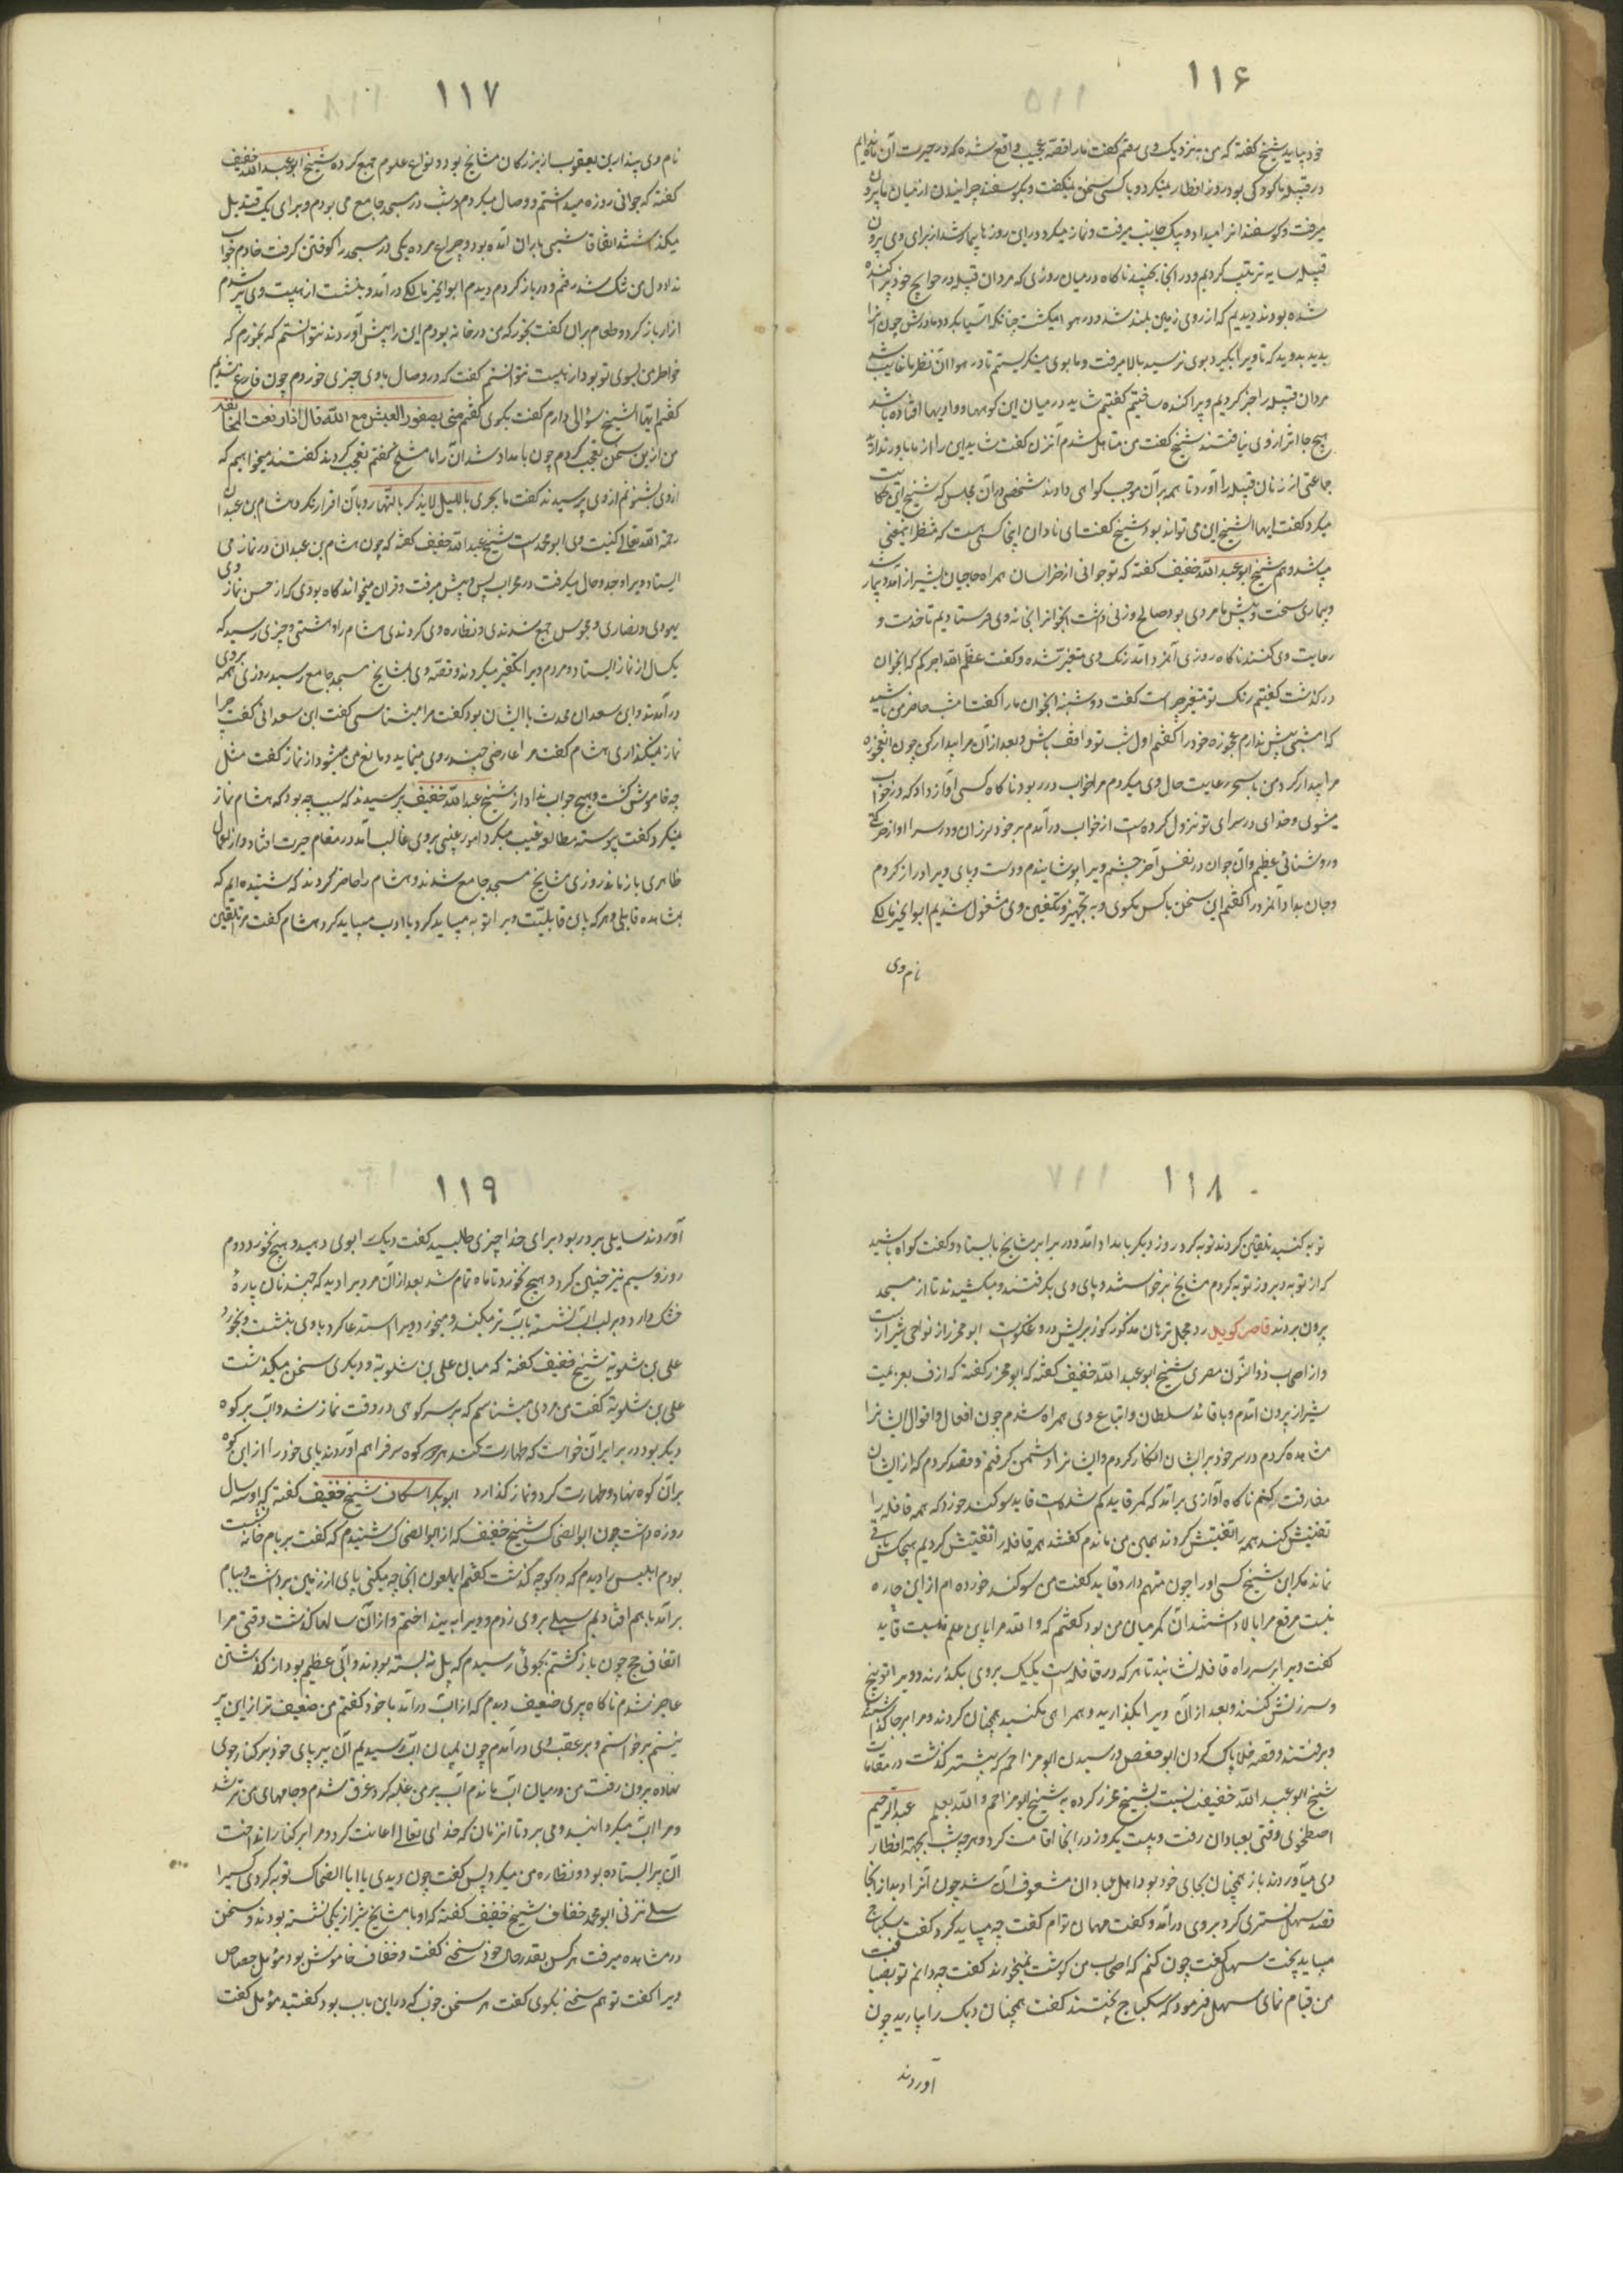 ۱۱۶
خود بیاید شیخ گفته که من به نزدیک وی رفتم گفت ما را قصّه عجیب واقع شده که در حیرت آن مانده‌ایم
در قبیله ما کودکی بود روز افطار نمیکرد و با کسی سخن نمیگفت و بگوسفند چرانیدن از میان ما بیرون
میرفت و گوسفندانرا میداد و بیک جانب میرفت و نماز میکرد در این روزها بیمار شد از برای وی بیرون
قبیله سایه ترتیب کردیم و در انجا بخسپید ناگاه در میان روزی که مردان قبیله در حوایج خود پراکنده
شده بودند دیدیم که از روی زمین بلند شد و در هوا میگشت چنانکه آسیا بگردد مادرش چون انرا
بدید بدوید که تا ویرا بگیرد بوی نرسید بالا میرفت و ما بوی مینگریستیم تا در هوا از نظر ما غایب شد
مردان قبیله را خبر کردیم و پراکنده ساختیم گفتیم شاید در میان این کوهها و وادیها افتاده باشد
هیچ جا اثر از وی نیافتند شیخ گفت من متأمل شدم آنزن گفت شاید این را از ما باور نداری
جماعتی از زنان قبیله را آورد تا همه بر آن موجب گواهی دادند شخصی در آن مجلس که شیخ این حکایت
میکرد گفت ایها الشیخ این می تواند بود شیخ گفت ای نادان اینجا کسی هست که منتظر اینمعنی
میباشد و هم شیخ ابو عبد الله خفیف گفته که نو جوانی از خراسان همراه حاجیان بشیراز آمد و بیمار شد
و بیماری سخت و پیش ما مردی بود صالح و زنی داشت انجوانرا بخانه وی فرستادیم تا خدمت و
رعایت وی کنند ناگاه روزی آنمرد آمد رنگ وی متغیّر شده و گفت عظّم الله اجرکم که انجوان
درگذشت گفتم رنگ تو متغیّر چراست گفت دوشینه انجوان ما را گفت امشب حاضر من باشید
که امشبی بیش ندارم عجوزه خود را گفتم اول شب تو واقف باش و بعد از آن مرا بیدار کن چون انعجوزه
مرا بیدار کرد من تا سحر رعایت حال وی میکردم مرا خواب در ربود ناگاه کسی آواز داد که در خواب
میشوی و خدای در سرای تو نزول کرده‌است از خواب در آمدم بر خود لرزان و در سرا اواز حرکتی
و روشنائی عظیم و آن جوان در نفس آخر چشم ویرا پوشانیدم و دست و پای ویرا دراز کردم
و جان بداد آنمرد را گفتم این سخن با کس مگوی و به تجهیز و تکفین وی مشغول شدیم ابو الخیر مالکی
نام وی
۱۱۷
نام وی پندار بن یعقوب از بزرگان مشایخ بود و انواع علوم جمع کرده شیخ ابو عبد الله خفیف
گفته که جوانی روزه میداشتم و وصال میکردم و شب در مسجد جامع می بودم و برای یک قندیل
میگذاشتند اتفاقا شبی باران آمده بود و چراغ مرده یکی در مسجد را کوفتن گرفت خادم جواب
نداد دل من تنگ شد رفتم و در باز کردم دیدم ابو الخیر مالکی در آمد و بنشست از هیبت وی پر شدم
ازار باز کرد و طعام بران گفت بخور که من در خانه بودم این را پیش آوردند نتوانستم که بخورم که
خواطر من بسوی تو بود از هیبت نتوانستم گفت که در وصال باوی چیزی خوردم چون فارغ شدیم
گفتم ایها الشیخ سؤالی دارم گفت بگوی گفتم متی یصفو العیش مع الله قال اذا رفعت المخالفة
من از این سخن تعجب کردم چون بامداد شد آن را با مشایخ گفتم تعجب کردند گفتند میخواهیم که
از وی بشنویم از وی پرسیدند گفت ما یجری باللیل لا یذکر بالنهار و بآن اقرار نکرد هشام بن عبدان
رحمة الله تعالی کنیت وی ابو محمد است شیخ عبد الله خفیف گفته که چون هشام بن عبدان در نماز می
ایستاد ویرا وجد و حال میگرفت در محراب پس و پیش میرفت و قران میخواند گاه بودی که از حسن نماز وی
یهودی و نصاری و مجوس جمع شدندی و نظاره وی کردندی هشام را دهشتی و چیزی رسید که
یکسال از نماز ایستاد و مردم ویرا تکفیر میکردند و قصّه وی بمشایخ مسجد جامع رسید روزی همه بر وی
در آمدند و ابن سعدان محدث با ایشان بود گفت مرا میشناسی گفت ابن سعدانی گفت چرا
نماز نمیگذاری هشام گفت مرا عارضی چند روی مینماید و مانع من میشود از نماز گفت مثل
چه خاموش گشت و هیچ جواب نداد از شیخ عبد الله خفیف پرسیدند که سبب چه بود که هشام نماز
نمیکرد گفت پیوسته مطالعه غیب میکرد امور غیبی بر وی غالب آمد در مقام حیرت افتاد و از اعمال
ظاهری باز ماند روزی مشایخ مسجد جامع شدند و هشام را حاضر کردند که شنیده‌ایم که
بمشاهده قایلی و هر که باین قایلست ویرا توبه میباید کرد یا ادب میباید کرد هشام گفت مرا تلقین
۱۱۸
توبه کنید تلقین کردند توبه کرد روز دیگر بامداد آمد و در برابر مشایخ بایستاد و گفت گواه باشید
که از توبه دیروز توبه کردم مشایخ برخواستند و پای وی بگرفتند و میکشیدند تا از مسجد
بیرون بردند
و از اصحاب ذو النون مصری شیخ ابو عبد الله خفیف گفته که ابو محرز گفته که از ف بعزیمت
شیراز بیرون آمدم و با قائد سلطان و اتباع وی همراه شدم چون افعال و اقوال ایشانرا
مشاهده کردم در سر خود بر ایشان انکار کردم و ایشانرا دشمن گرفتم و قصد کردم که از ایشان
مفارقت کنم ناگاه آوازی بر آمد که کمر قاید گم شده‌است قاید سوگند خورد که همه قافله را
تفتیش کنند همه را تفتیش کردند همین من ماندم گفتند همه قافله را تفتیش کردیم هیچکس باقی
نماند مگر این شیخ کسی او را چون متهم دارد قاید گفت من سوگند خورده‌ام از این چاره
نیست مرقع مرا بالا داشتند آن کمر میان من بود گفتم که والله مرا باین علم نیست قاید
گفت ویرا بر سر راه قافله نشانید تا هر که در قافله است یکیک بر وی بگذرند و ویرا توبیخ
و سرزنش کنند و بعد از آن ویرا بگذارید و همراهی نکنید همچنان کردند و مرا بر جا گذاشتند
و برفتند و قصه خلا پاک کردن ابو حفص و رسیدن ابو مزاحم که پیشتر گذشت در مقامات
شیخ ابو عبد الله خفیف نسبت بشیخ محرز کرده نه شیخ ابو مزاحم والله یعلم عبد الرحیم
اصطخری وقتی بعبادان رفت و بیست یکروز در انجا اقامت کرد و هر چه شب بجهة افطار
وی میآوردند باز همچنان بجای خود بود اهل عبادان مشعوف آن شد چون آنرا دید از انجا
قصد سهل تستری کرد بر وی در آمد و گفت مهمان توام گفت چه میباید کرد گفت سکباج
میباید پخت سهل گفت چون کنم که اصحاب من گوشت نمیخورند گفت چه دانم تو بضیافت
من قیام نمای سهل فرمود که سکباج پختند گفت همچنان دیک را بیارید چون
آوردند
۱۱۹
آوردند سایلی بر در بود برای خدا چیزی طلبید گفت دیگ را بوی دهید و هیچ نخورد و دوم
روز و سیم نیز چنین کرد و هیچ نخورد تا ماه تمام شد بعد از آن مرد ویرا دید که چند نان پارۀ
خشک دارد و بر لب آب نشسته بآب تر میکند و میخورد ویرا استدعا کرد باوی بنشست و بخورد
علی بن شلویة شیخ خفیف گفته که میان علی بن شلویة و دیگری سخن میگذشت
علی بن شلویة گفت من مردی میشناسم که بر سر کوهی در وقت نماز شد و آب بر کوه
دیگر بود در برابر آن خواست که طهارت کند هر دو کوه سر فراهم آوردند پای خود را از این کوه
بر آن کوه نهاد و طهارت کرد و نماز گذارد ابوبکر اسکاف شیخ خفیف گفته که او سی سال
روزه داشت چون ابو الضحاک شیخ خفیف که از ابو الضحاک شنیدم که گفت بر بام خانه نشسته
بودم ابلیس را دیدم که در کوچه گذشت گفتم ای ملعون اینجا چه میکنی پای از زمین برداشت و ببام
بر آمد باهم افتادیم سیلی بر وی زدم و ویرا بینداختم و از آن سالها گذشت وقتی مرا
اتفاق حج چون باز گشتم بجوئی رسیدم که پل نه بسته بودند و آبی عظیم بود از گذشتن
عاجز شدم ناگاه پیری ضعیف دیدم که از آب در آمد با خود گفتم من ضعیف تر از این پیر
نیستم برخواستم و بر عقب وی در آمدم چون بمیان آب رسیدیم آن پیر پای خود بر کنار جوی
نهاده بیرون رفت من در میان آب ماندم آب بر من غلبه کرد غرق شدم و جامهای من تر شد
و مرا آب میگردانید و می برد تا انزمان که خدای تعالی اعانت کرد و مرا بر کنار انداخت
آن پیر ایستاده بود و نظاره من میکرد پس گفت چون دیدی یا ابا الضحاک توبه کردی که مرا
سیلی نزنی ابو محمد خفاف شیخ خفیف گفته که او با مشایخ شیراز یکجا نشسته بودند و سخن
در مشاهده میرفت هر کس بقدر حال خود سخنی گفت و خفاف خاموش بود مؤمل جصاص
ویرا گفت تو هم سخنی بگوی گفت هر سخن خوب که در این باب بود گفتید مؤمل گفت